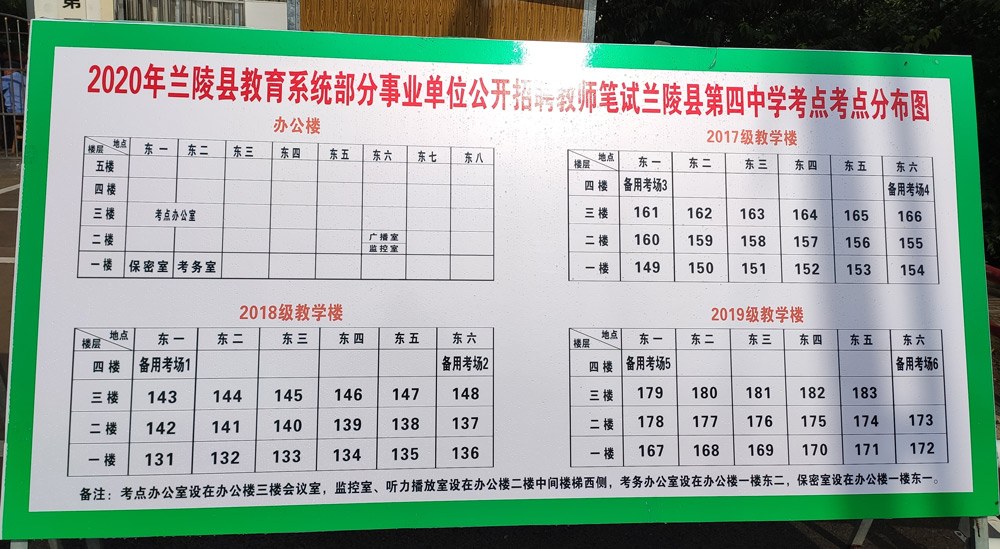 第
2020年兰陵县教育系统部分事业单位公开招聘教师笔试兰陵县第四中学考点考点分布图
办公楼
楼层 地点 东一 东二 东三 东四 东五 东六 东七 东八
五楼
四楼
三楼 考点办公室
二楼 广播室
监控室
一楼 保密室 考务室
2017级教学楼
楼层 地点 东一 东二 东三 东四 东五 东六
四楼 备用考场3 备用考场4
三楼 161 162 163 164 165 166
二楼 160 159 158 157 156 155
一楼 149 150 151 152 153 154
2018级教学楼
楼层 地点 东一 东二 东三 东四 东五 东六
四楼 备用考场1 备用考场2
三楼 143 144 145 146 147 148
二楼 142 141 140 139 138 137
一楼 131 132 133 134 135 136
2019级教学楼
楼层 地点 东一 东二 东三 东四 东五 东六
四楼 备用考场5 备用考场6
三楼 179 180 181 182 183
二楼 178 177 176 175 174 173
一楼 167 168 169 170 171 172
备注：考点办公室设在办公楼三楼会议室，监控室、听力播放室设在办公楼二楼中间楼梯西侧，考务办公室设在办公楼一楼东二，保密室设在办公楼一楼东一。